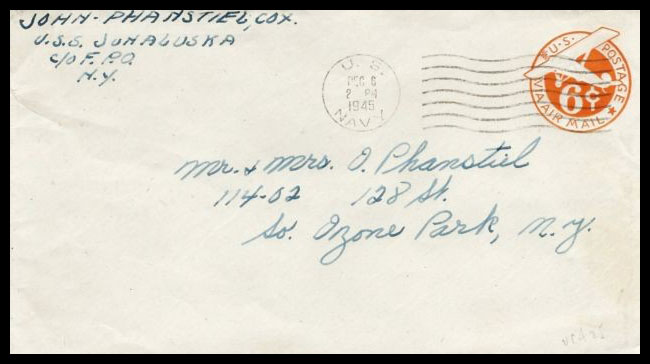 JOHN-PHANSTIEL, COX.
U.S.S. JUNALUSKA
C/O F.P.O.
N.Y.
U.S.
DEC 6
2 PM
1945
NAVY
U.S. POSTAGE
6¢
VIA AIR MAIL
Mr. & Mrs. O. Phanstiel
114-02 128 St.
So. Ozone Park, N.Y.